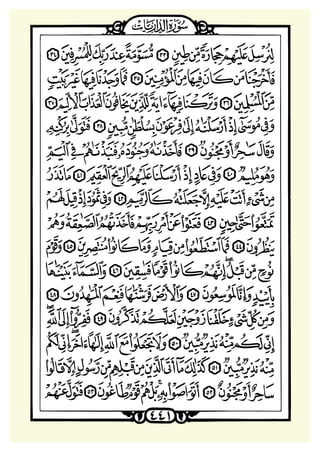 سُورَةُ الذَّارِيَاتِ
لِنُرْسِلَ عَلَيْهِمْ حِجَارَةً مِّن طِينٍ ٣٣ مُّسَوَّمَةً عِندَ رَبِّكَ لِلْمُسْرِفِينَ ٣٤
فَأَخْرَجْنَا مَن كَانَ فِيهَا مِنَ الْمُؤْمِنِينَ ٣٥ فَمَا وَجَدْنَا فِيهَا غَيْرَ بَيْتٍ
مِّنَ الْمُسْلِمِينَ ٣٦ وَتَرَكْنَا فِيهَا آيَةً لِّلَّذِينَ يَخَافُونَ الْعَذَابَ الْأَلِيمَ ٣٧
وَفِي مُوسَىٰ إِذْ أَرْسَلْنَاهُ إِلَىٰ فِرْعَوْنَ بِسُلْطَانٍ مُّبِينٍ ٣٨ فَتَوَلَّىٰ بِرُكْنِهِ
وَقَالَ سَاحِرٌ أَوْ مَجْنُونٌ ٣٩ فَأَخَذْنَاهُ وَجُنُودَهُ فَنَبَذْنَاهُمْ فِي الْيَمِّ
وَهُوَ مُلِيمٌ ٤٠ وَفِي عَادٍ إِذْ أَرْسَلْنَا عَلَيْهِمُ الرِّيحَ الْعَقِيمَ ٤١ مَا تَذَرُ
مِن شَيْءٍ أَتَتْ عَلَيْهِ إِلَّا جَعَلَتْهُ كَالرَّمِيمِ ٤٢ وَفِي ثَمُودَ إِذْ قِيلَ لَهُمْ
تَمَتَّعُوا حَتَّىٰ حِينٍ ٤٣ فَعَتَوْا عَنْ أَمْرِ رَبِّهِمْ فَأَخَذَتْهُمُ الصَّاعِقَةُ وَهُمْ
يَنظُرُونَ ٤٤ فَمَا اسْتَطَاعُوا مِن قِيَامٍ وَمَا كَانُوا مُنتَصِرِينَ ٤٥ وَقَوْمَ
نُوحٍ مِّن قَبْلُ إِنَّهُمْ كَانُوا قَوْمًا فَاسِقِينَ ٤٦ وَالسَّمَاءَ بَنَيْنَاهَا
بِأَيْيدٍ وَإِنَّا لَمُوسِعُونَ ٤٧ وَالْأَرْضَ فَرَشْنَاهَا فَنِعْمَ الْمَاهِدُونَ ٤٨
وَمِن كُلِّ شَيْءٍ خَلَقْنَا زَوْجَيْنِ لَعَلَّكُمْ تَذَكَّرُونَ ٤٩ فَفِرُّوا إِلَى اللَّهِ
إِنِّي لَكُم مِّنْهُ نَذِيرٌ مُّبِينٌ ٥٠ وَلَا تَجْعَلُوا مَعَ اللَّهِ إِلَٰهًا آخَرَ إِنِّي لَكُم
مِّنْهُ نَذِيرٌ مُّبِينٌ ٥١ كَذَٰلِكَ مَا أَتَى الَّذِينَ مِن قَبْلِهِم مِّن رَّسُولٍ إِلَّا قَالُوا
سَاحِرٌ أَوْ مَجْنُونٌ ٥٢ أَتَوَاصَوْا بِهِ بَلْ هُمْ قَوْمٌ طَاغُونَ ٥٣ فَتَوَلَّ عَنْهُمْ
٤٤١